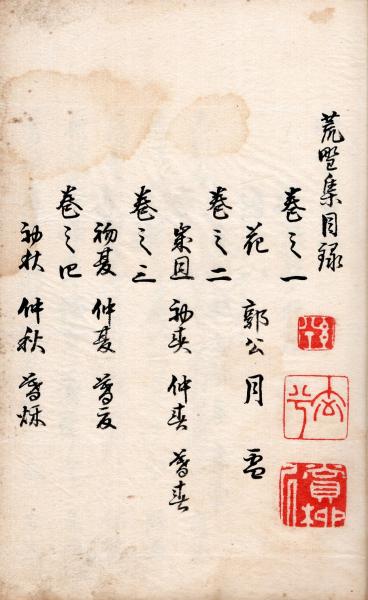 荒野集目録
巻之一
花 郭公 月 雪
巻之二
歳旦 初春 仲春 暮春
巻之三
初夏 仲夏 暮夏
巻之四
初秋 仲秋 暮秋